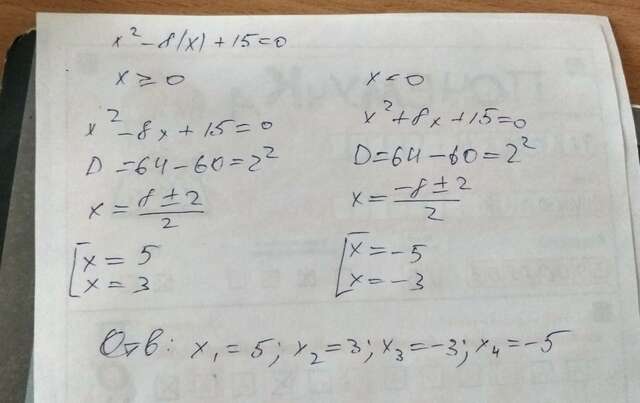 x² - 8|x| + 15 = 0
x ≥ 0
x² - 8x + 15 = 0
D = 64 - 60 = 2²
x = (8 ± 2)/2
[x = 5
x = 3
x < 0
x² + 8x + 15 = 0
D = 64 - 60 = 2²
x = (-8 ± 2)/2
[x = -5
x = -3
Отв: x₁ = 5; x₂ = 3; x₃ = -3; x₄ = -5